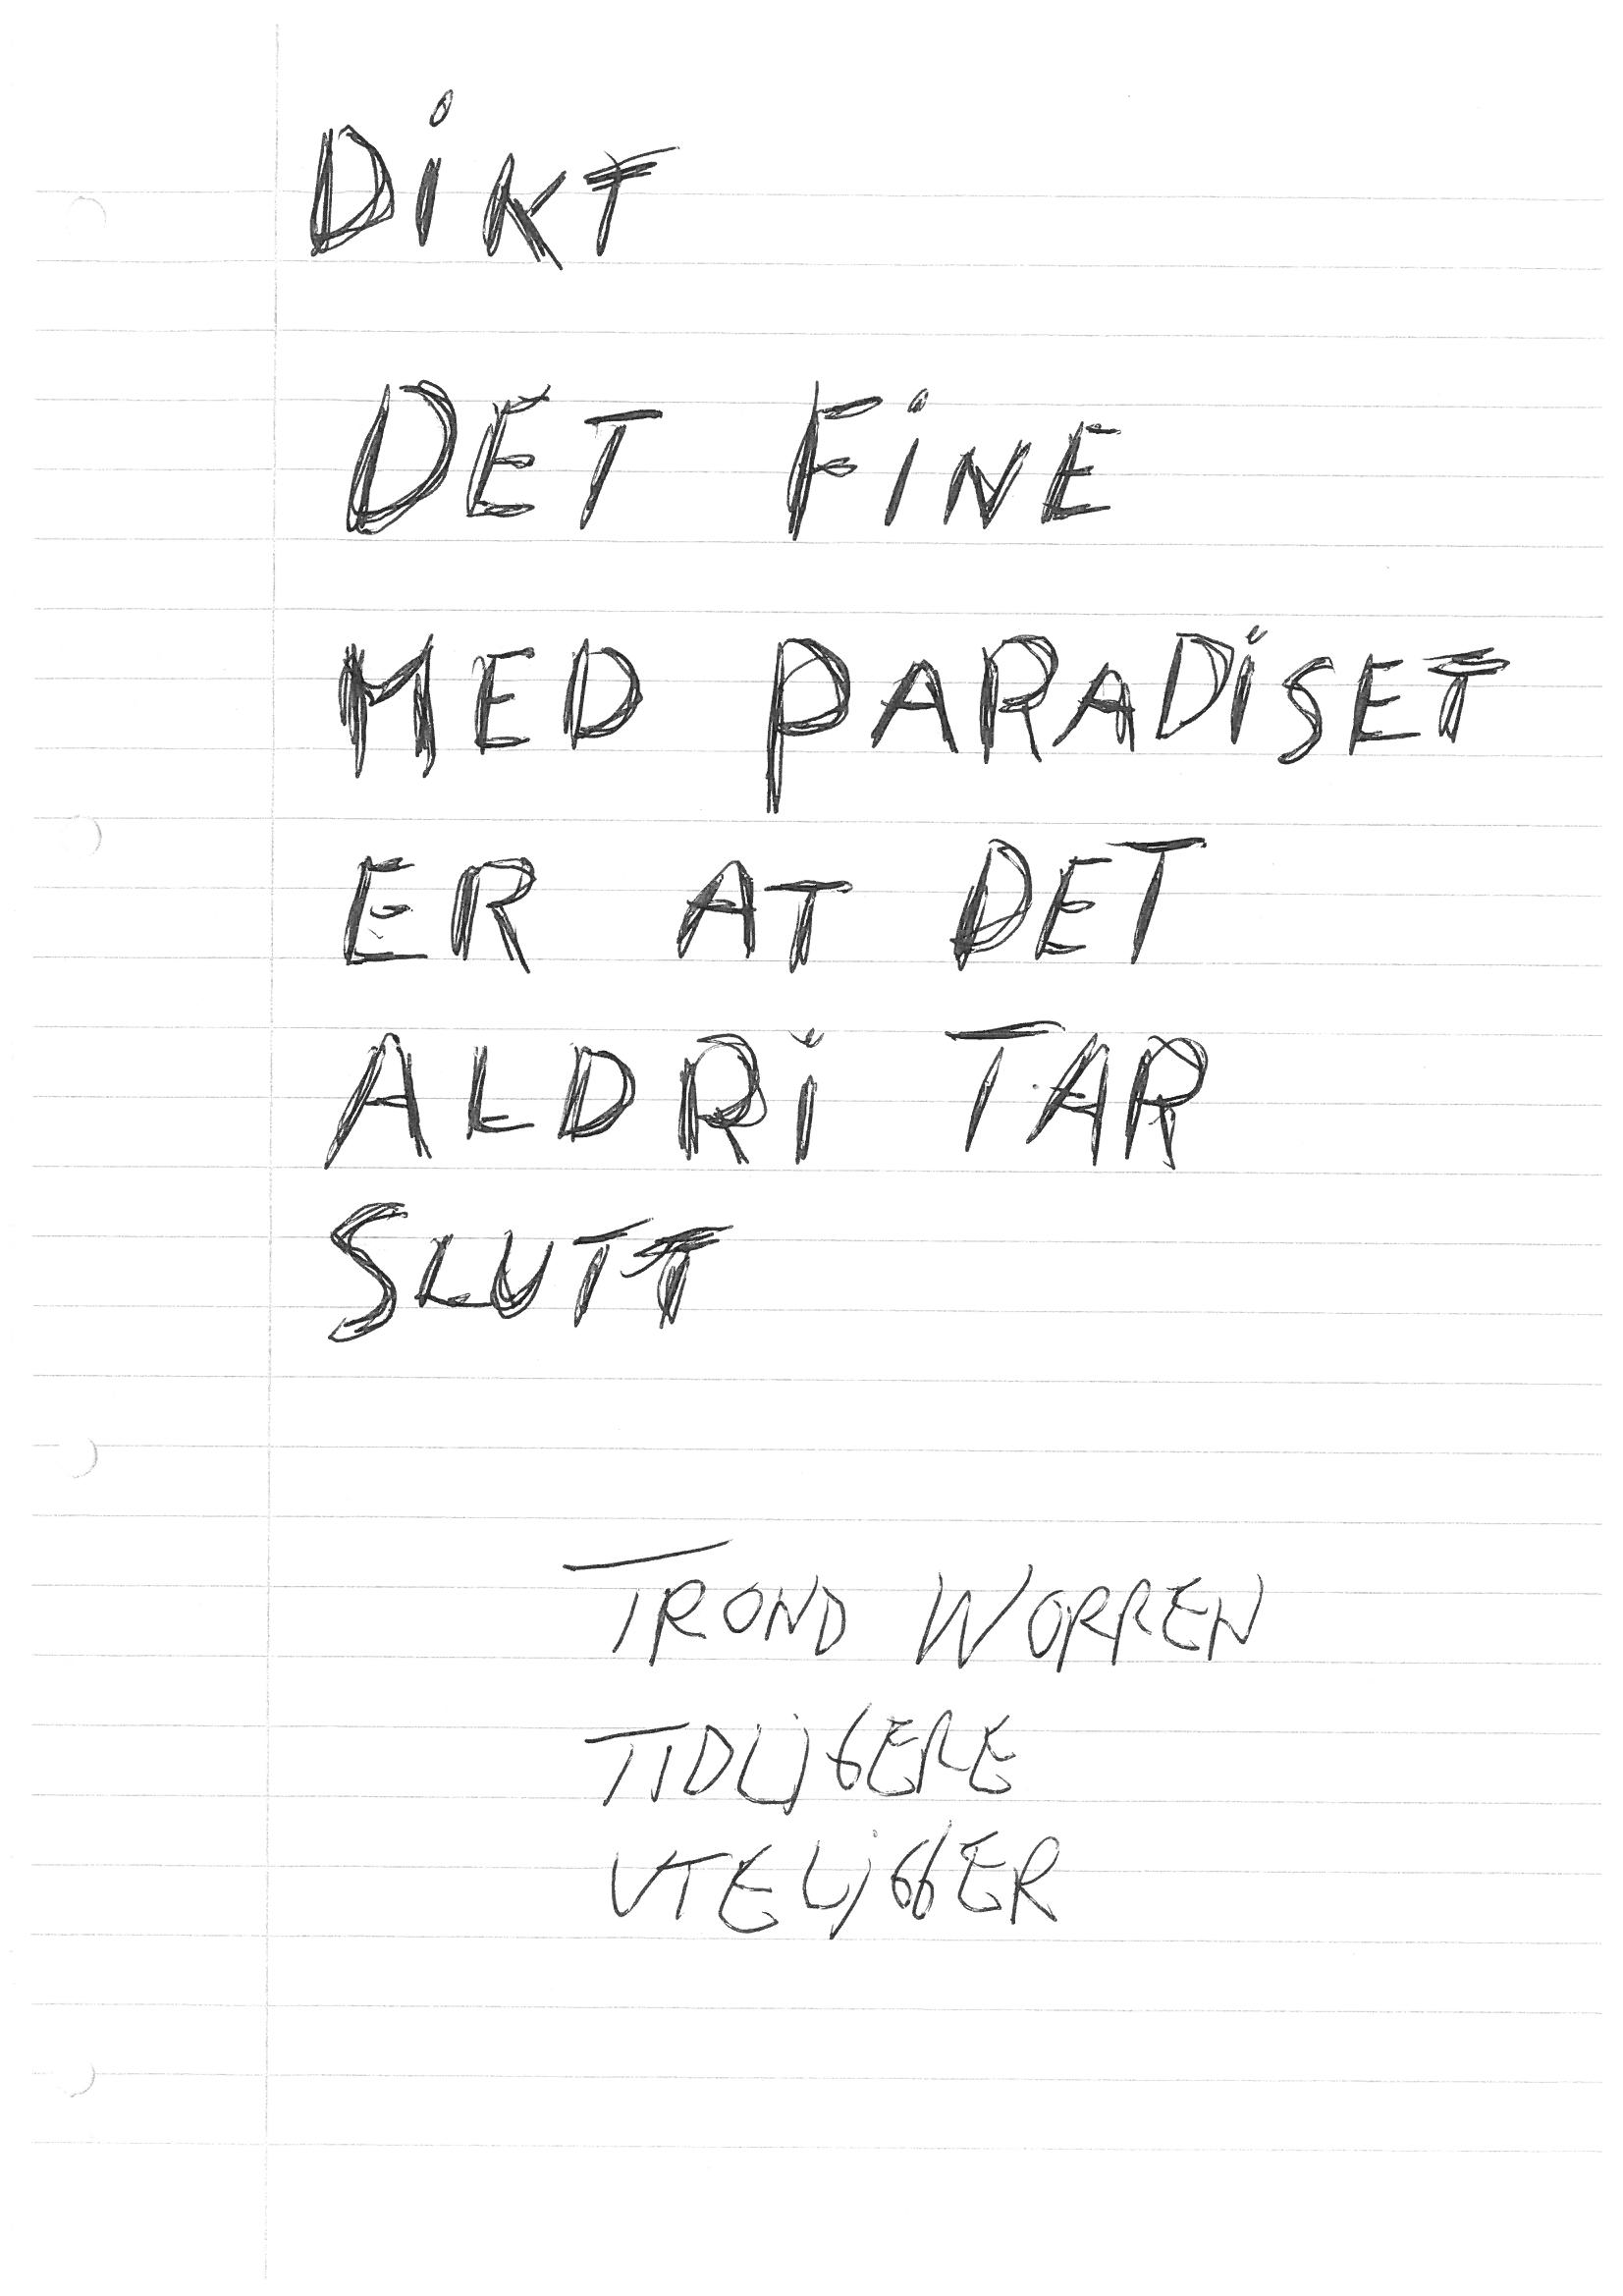 DiKT
DET FiNE
MED PARADiSET
ER AT DET
ALDRi TAR
SLUTT
TROND WORREN
TIDLIGERE
UTELIGGER